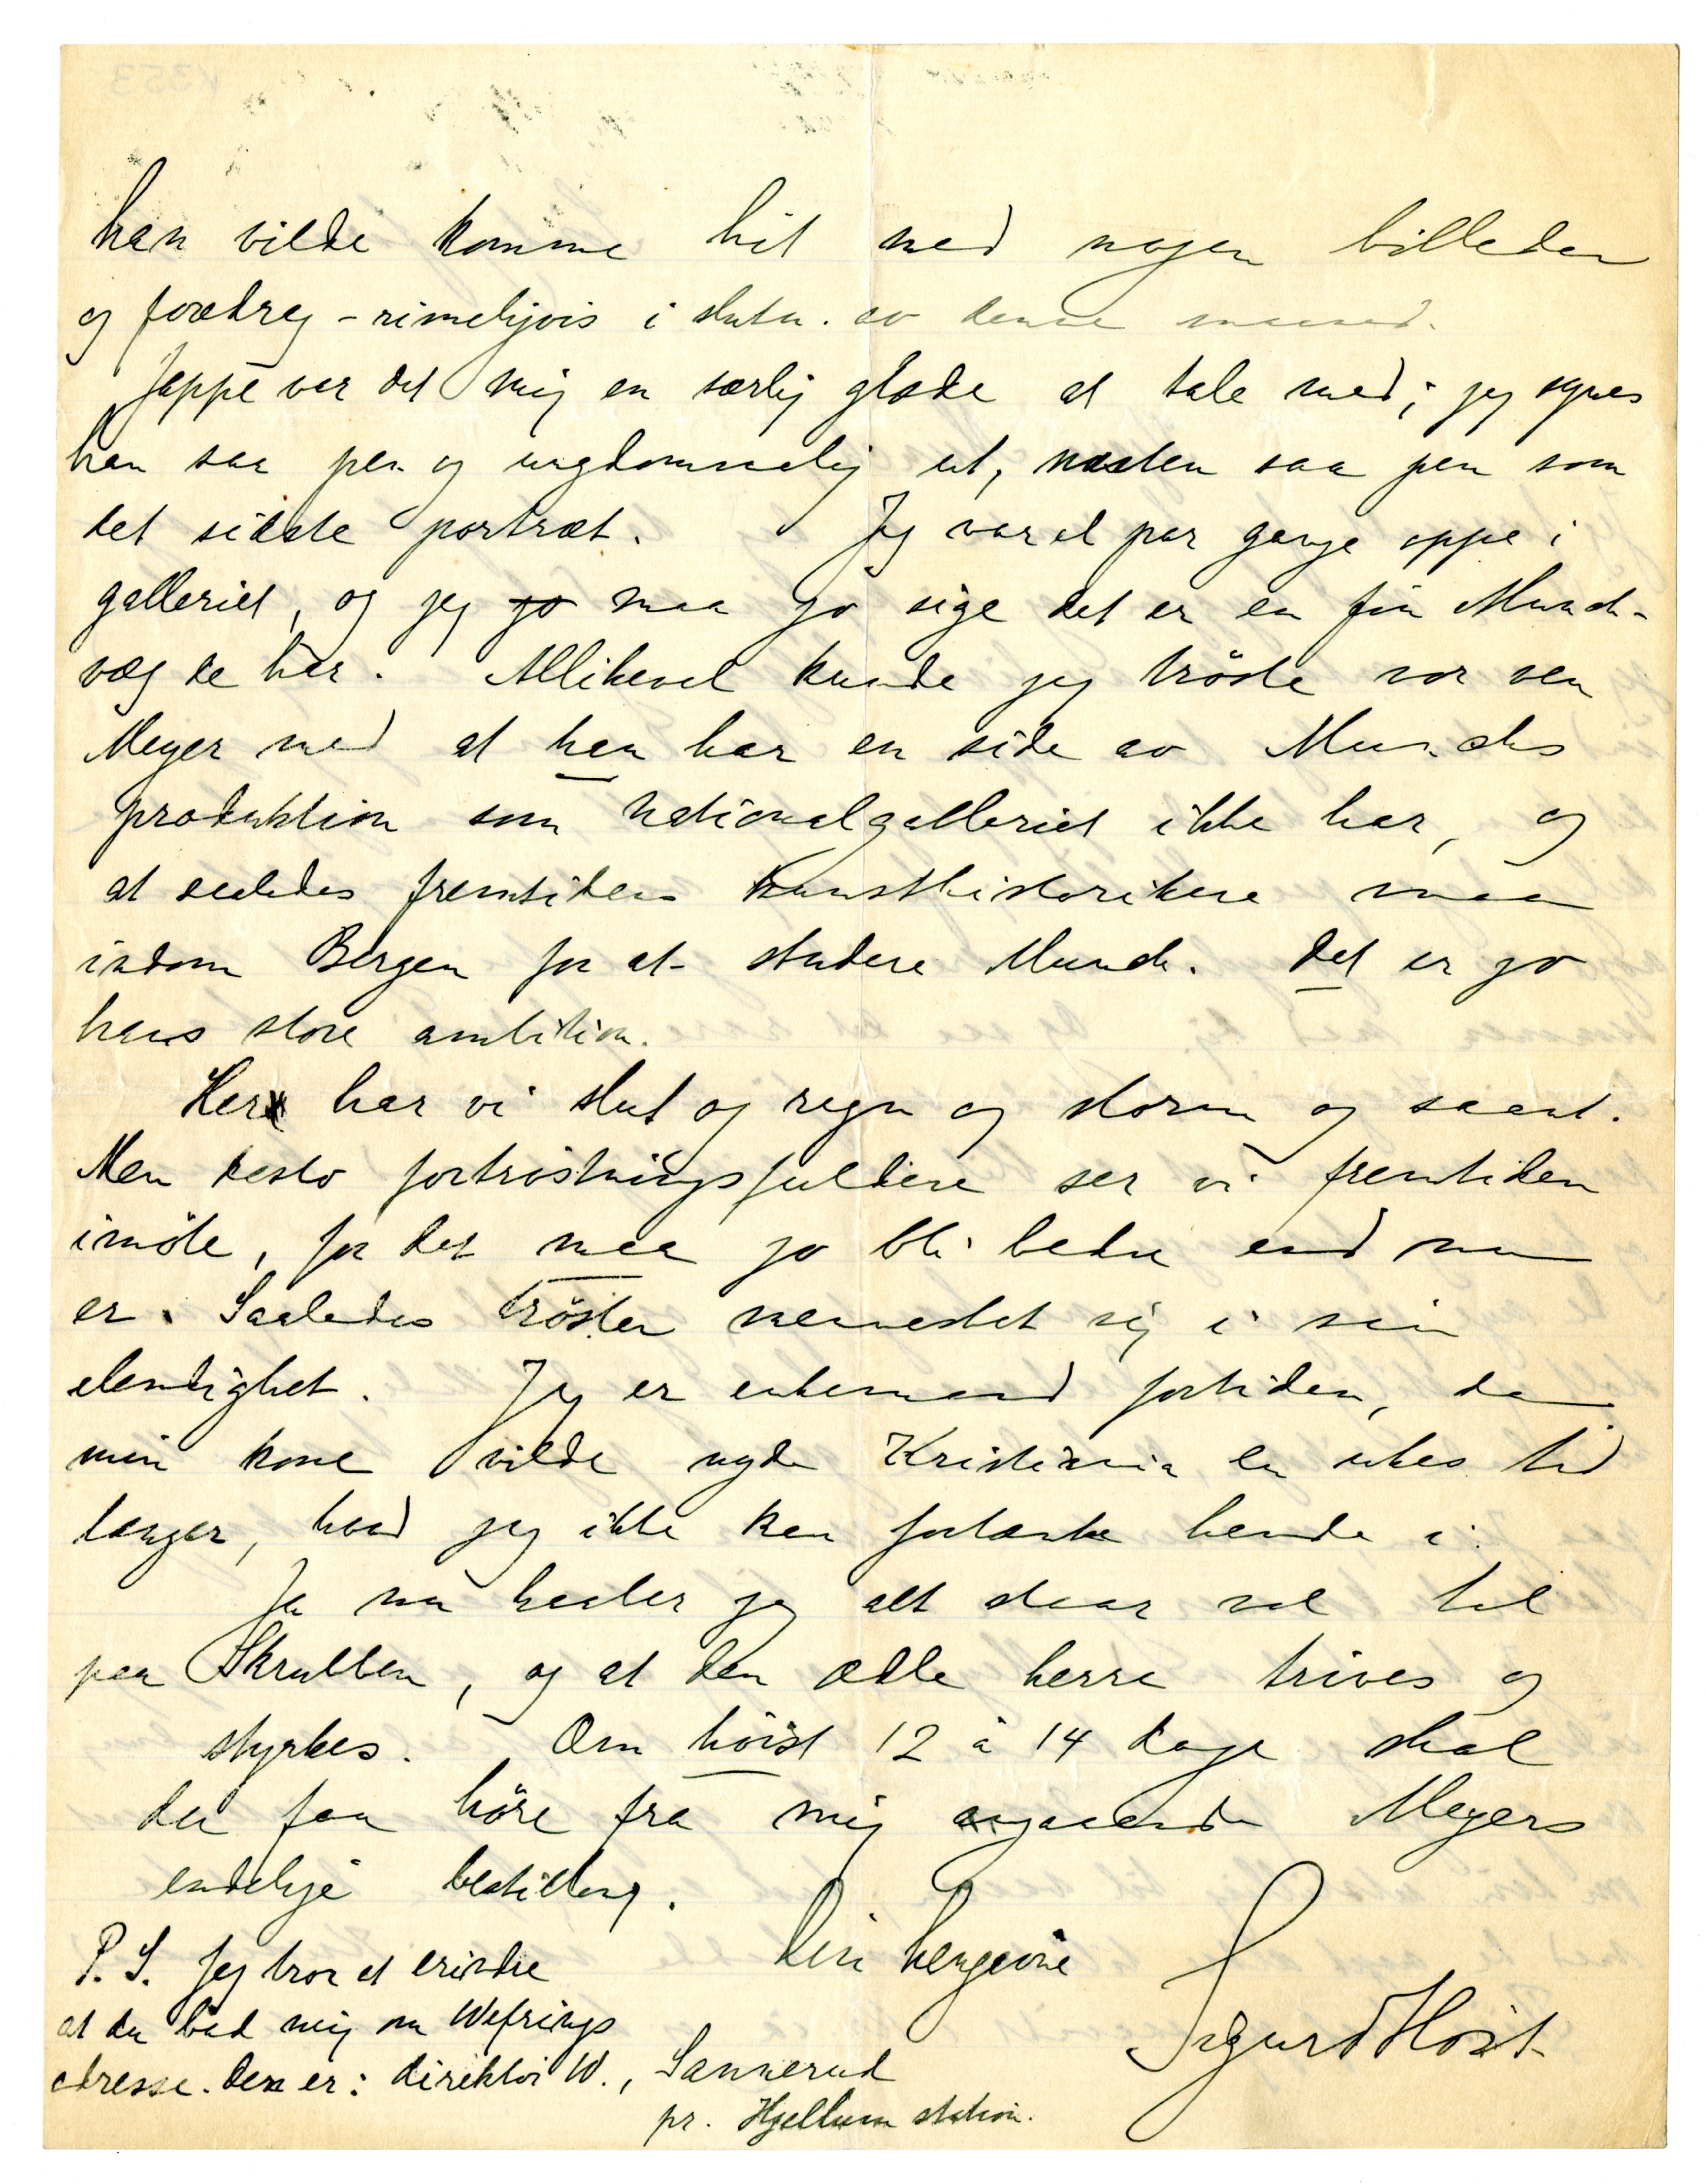 han vilde komme hit med nogen billeder
og foredrag - rimeligvis i slutn. av denne maaned.
Jappe var det mig en særlig glæde at tale med; jeg synes
han saa pen og ungdommelig ut, næsten saa pen som
det sidste portræt. Jeg var et par gange oppe i
galleriet, og jeg jo maa jo sige det er en fin Munch-
væg de har. Allikevel kunde jeg tröste vor ven
Meyer med at han har en side av Munchs
produktion som Nationalgalleriet ikke har, og
at saaledes fremtidens kunsthistorikere maa
indom Bergen for at studere Munch. Det er jo
hans store ambition.
Her har vi slud og regn og storm og saant.
Men desto fortröstningsfuldere ser vi fremtiden
imöte, for det maa jo bli bedre end nu
er. Saaledes tröster mennesket sig i sin
elendighet. Jeg er enkemand fortiden, da
min kone vilde nyde Kristiania en ukes tid
længer, hvad jeg ikke kan fortænke hende i.
Ja nu haaber jeg alt staar vel til
paa Skrubben, og at den ædle herre trives og
styrkes. Om höist 12 à 14 dage skal
du faa höre fra mig angaaende Meyers
endelige bestilling.
Din hengivne
Sigurd Höst
P.S. Jeg tror at erindre
at du bad mig om Wefrings
adresse. Den er: direktör W., Sannerud
pr. Hjellum station.
K353